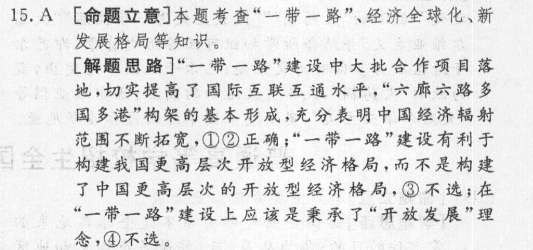 15. A 【命题立意】本题考查“一带一路”、经济全球化、新
发展格局等知识。
【解题思路】“一带一路”建设中大批合作项目落
地,切实提高了国际互联互通水平,“六廊六路多
国多港”构架的基本形成,充分表明中国经济辐射
范围不断拓宽,①②正确;“一带一路”建设有利于
构建我国更高层次开放型经济格局,而不是构建
了中国更高层次的开放型经济格局,③不选;在
“一带一路”建设上应该是秉承了“开放发展”理
念,④不选。